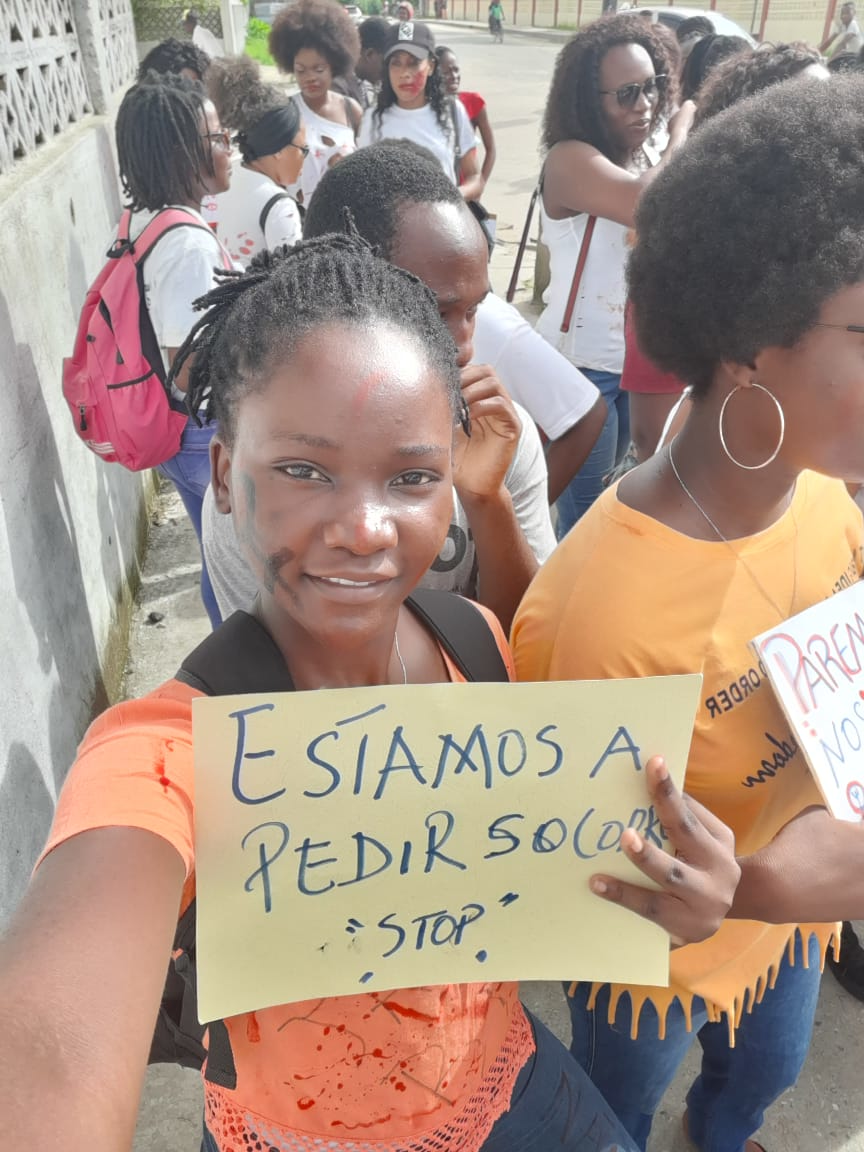 ESTAMOS A
PEDIR SOCORR
"STOP"
PAREM
NOS
ORDER